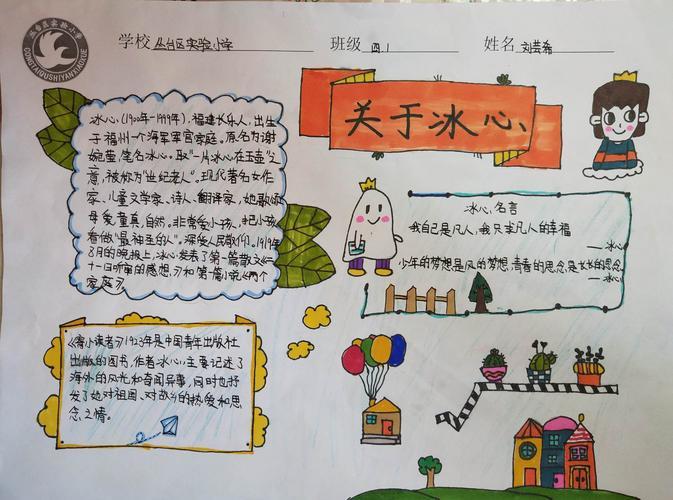 丛台区实验小学
CONGTAIQUSHIYANXIAOXUE
学校 丛台区实验小学 班级 四.1 姓名 刘芸希
关于冰心
冰心,(1900年-1999年),福建长乐人,出生
于福州一个海军军官家庭。原名为谢
婉莹,笔名冰心。取"一片冰心在玉壶"之
意,被称为"世纪老人"。现代著名女作
家、儿童文学家、诗人、翻译家,她歌颂
母爱、童真、自然。非常爱小孩人,把小孩
看做"最神圣的人"。深受人民敬仰。1919年
8月的晚报上,冰心发表了第一篇散文《二
十一日听审的感想》和第一篇小说《两个
家庭》。
冰心名言
我自己是凡人,我只求凡人的幸福
——冰心
少年的梦想是风的梦想,青春的思念,是长长的思念
——冰心
《寄小读者》1923年是中国青年出版社
出版的图书,作者冰心,主要记述了
海外的风光和奇闻异事,同时也抒
发了她对祖国、对故乡的热爱和思
念之情。